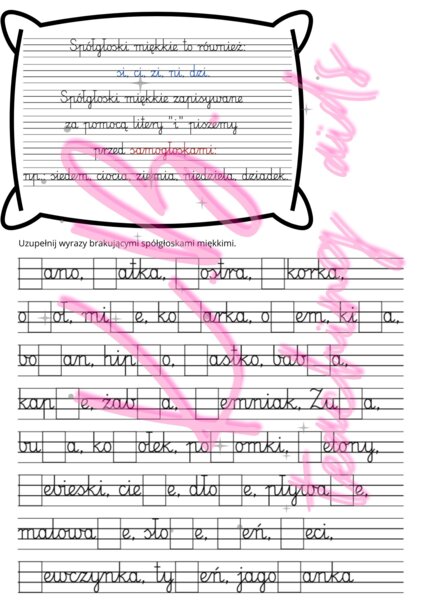 Spółgłoski miękkie to również:
si, ci, zi, ni, dzi.
Spółgłoski miękkie zapisywane
za pomocą litery "i" piszemy
przed samogłoskami:
np.: siedem, ciocia, ziemia, niedziela, dziadek.
Uzupełnij wyrazy brakującymi spółgłoskami miękkimi.
□ano, □atka, □ostra, □korka,
o□oł, mi□e, ko□arka, o□em, ki□a,
bo□an, hip□o, □astko, bab□a,
kap□e, żab□a, □emniak, Zu□a,
bu□a, ko□ołek, po□omki, □elony,
□ebieski, cie□e, dło□e, pływa□e,
malowa□e, sło□e, □eń, □eci,
□ewczynka, ty□eń, jago□anka
K.B.
Teaching aids